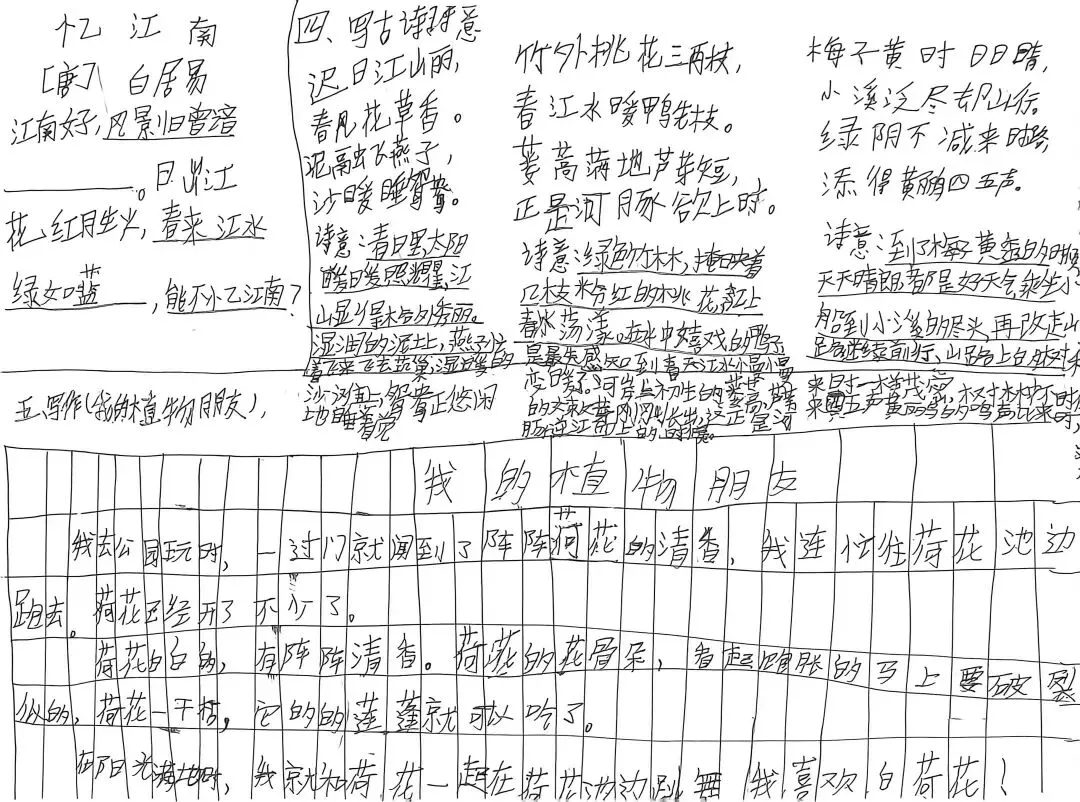 忆江南
[唐] 白居易
江南好,风景旧曾谙
。日出江
花红胜火,春来江水
绿如蓝,能不忆江南?
四、写古诗诗意
迟日江山丽,
春风花草香。
泥融飞燕子,
沙暖睡鸳鸯。
诗意:春日里,太阳
暖暖照耀,江
山显得格外秀丽。
湿润的泥土上,燕子忙
着飞来飞去筑巢,温暖的
沙洲上,鸳鸯正悠闲
地睡着觉
竹外桃花三两枝,
春江水暖鸭先枝。
蒌蒿满地芦芽短,
正是河豚欲上时。
诗意:绿色竹林,掩映着
几枝粉红的桃花,江上
春水荡漾,水中嬉戏的鸭子
是最先感知到春天江水
变暖了。河岸上初生的蒌蒿,
刚刚长出,这正是河
豚逆江而上的时候。
梅子黄时日日晴,
小溪泛尽却山行。
绿阴不减来时路,
添得黄鹂四五声。
诗意:到了梅子黄透的时
天天晴朗,都是好天气,乘坐小
船到小溪的尽头,再改走山
路继续前行,山路上的树
来时一样茂密,树林中不时
来四五声黄鹂鸟的鸣声,比来时,
五、写作(我的植物朋友)。
我的植物朋友
我去公园玩时,一过门就闻到了阵阵荷花的清香,我连忙往荷花池边
跑去。荷花已经开了不少了。
荷花白的,有阵阵清香。荷花的花骨朵,看起来饱胀的马上要破裂
似的,荷花一干枯,它的的莲蓬就可以吃了。
在阳光满地时,我就和荷花一起在荷花池边跳舞 我喜欢白荷花!